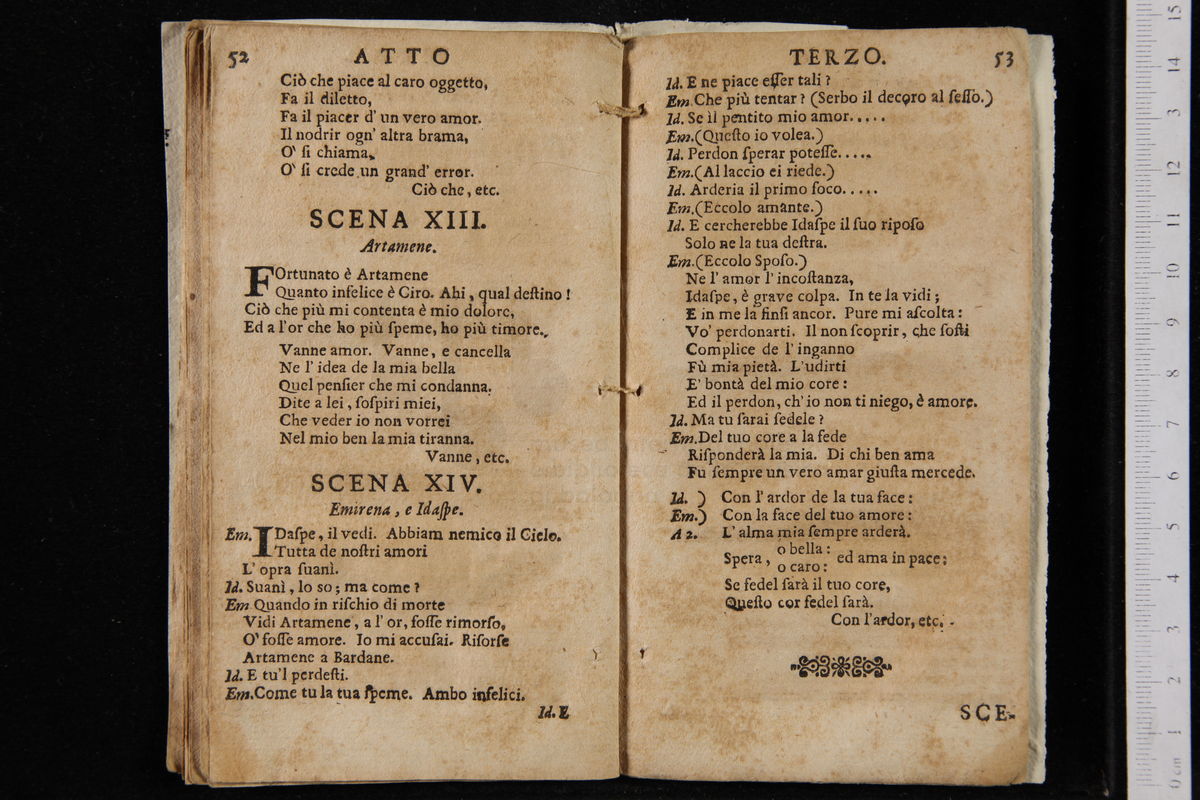 52
ATTO
Ciò che piace al caro oggetto,
Fa il diletto,
Fa il piacer d' un vero amor.
Il nodrir ogn' altra brama,
O' ſi chiama,
O' ſi crede un grand' error.
Ciò che, etc.
SCENA XIII.
Artamene.
FOrtunato è Artamene
Quanto infelice è Ciro. Ahi, qual deſtino!
Ciò che più mi contenta è mio dolore,
Ed a l'or che ho più ſpeme, ho più timore.
Vanne amor. Vanne, e cancella
Ne l' idea de la mia bella
Quel penſier che mi condanna.
Dite a lei, ſoſpiri miei,
Che veder io non vorrei
Nel mio ben la mia tiranna.
Vanne, etc.
SCENA XIV.
Emirena, e Idaſpe.
Em. IDaſpe, il vedi. Abbiam nemico il Cielo.
Tutta de noſtri amori
L' opra ſuanì.
Id. Suanì, lo so; ma come?
Em. Quando in riſchio di morte
Vidi Artamene, a l' or, foſſe rimorſo,
O' foſſe amore. Io mi accuſai. Riſorſe
Artamene a Bardane.
Id. E tu'l perdeſti.
Em. Come tu la tua ſpeme. Ambo infelici.
Id. E
TERZO.
53
Id. E ne piace eſſer tali?
Em. Che più tentar? (Serbo il decoro al ſeſſo.)
Id. Se il pentito mio amor.....
Em. (Queſto io volea.)
Id. Perdon ſperar poteſſe.....
Em. (Al laccio ei riede.)
Id. Arderia il primo foco.....
Em. (Eccolo amante.)
Id. E cercherebbe Idaſpe il ſuo ripoſo
Solo ne la tua deſtra.
Em. (Eccolo Spoſo.)
Ne l' amor l' incoſtanza,
Idaſpe, è grave colpa. In te la vidi;
E in me la finſi ancor. Pure mi aſcolta:
Vo' perdonarti. Il non ſcoprir, che foſti
Complice de l' inganno
Fù mia pietà. L'udirti
E' bontà del mio core:
Ed il perdon, ch' io non ti niego, è amore.
Id. Ma tu ſarai fedele?
Em. Del tuo core a la fede
Riſponderà la mia. Di chi ben ama
Fu ſempre un vero amar giuſta mercede.
Id. ) Con l' ardor de la tua face:
Em.) Con la face del tuo amore:
A 2. L' alma mia ſempre arderà.
o bella:
Spera, ed ama in pace;
o caro:
Se fedel ſarà il tuo core,
Queſto cor fedel ſarà.
Con l'ardor, etc.
SCE-
15
14
13
12
11
10
9
8
7
6
5
4
3
2
1
0 cm